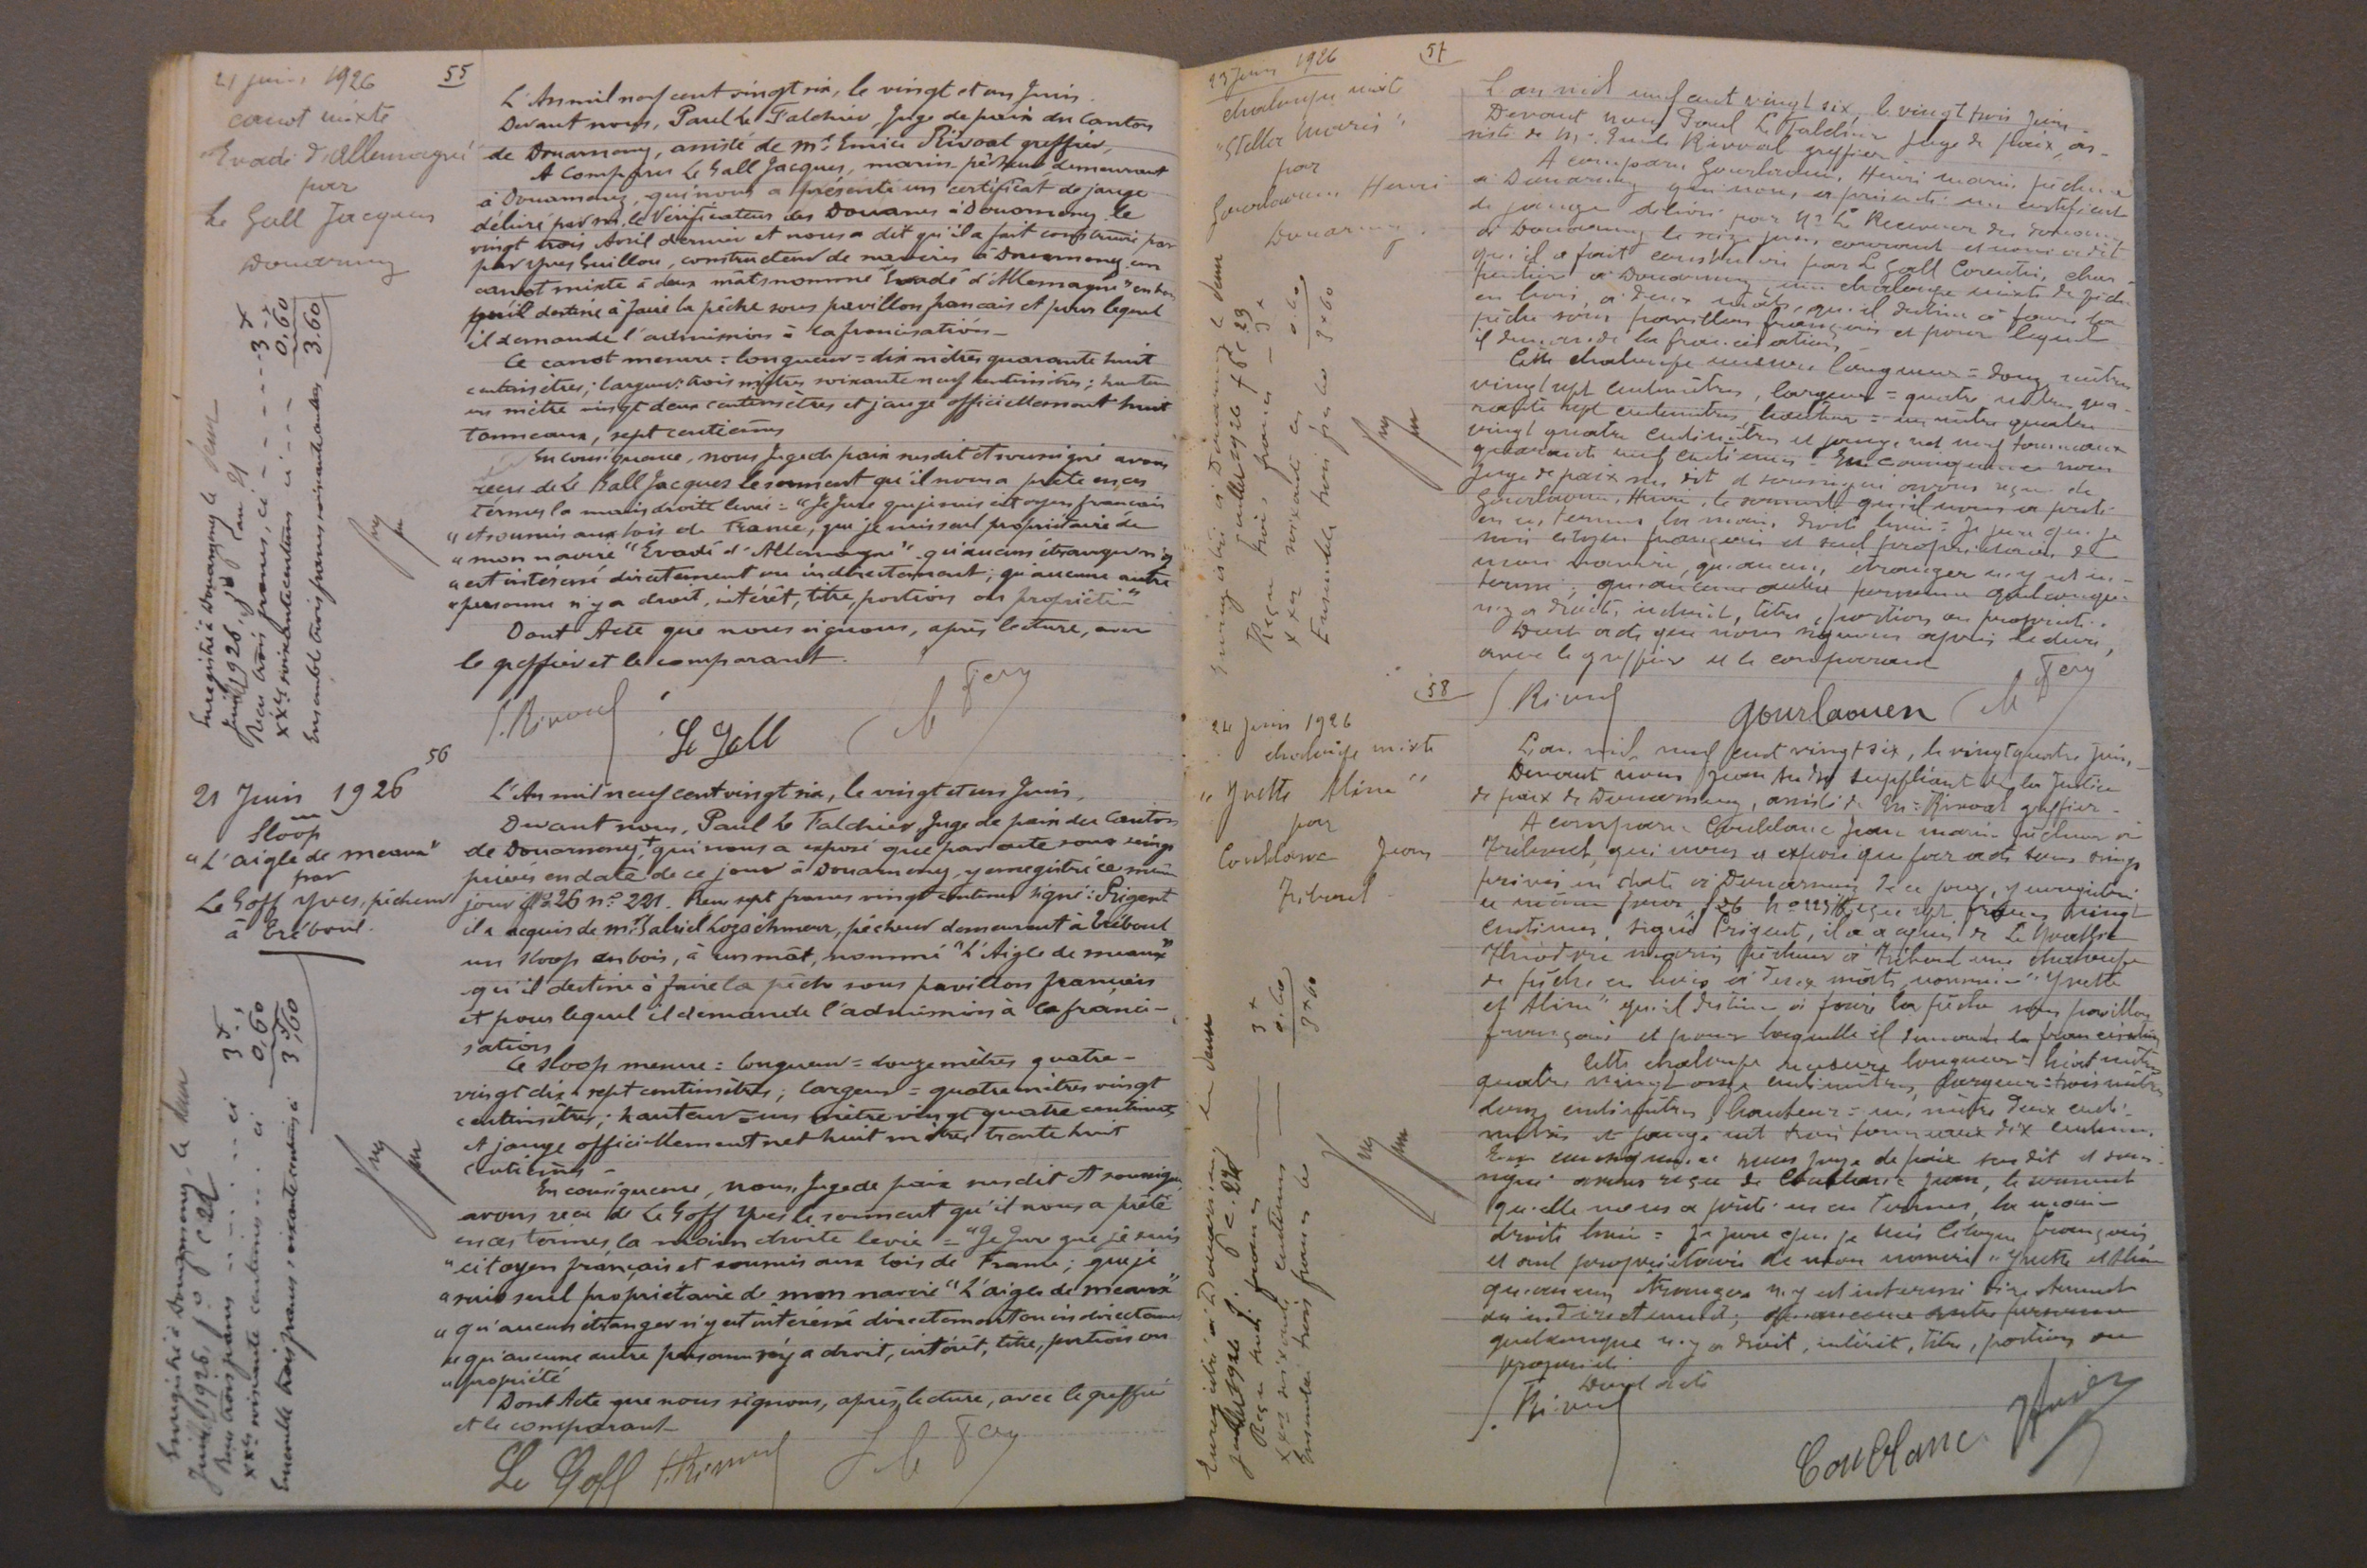 21 juin 1926
canot mixte
"Evadé d'Allemagne"
par
Le Gall Jacques
Douarnenez
55
L'An mil neuf cent vingt six, le vingt et un Juin.
Devant nous, Paul Le Falchier, Juge de paix du Canton
de Douarnenez, assisté de Me Emile Rivoal greffier,
A comparu Le Gall Jacques, marin-pêcheur demeurant
à Douarnenez, qui nous a présenté un certificat de jauge
délivré par mr le Vérificateur des Douanes à Douarnenez le
vingt trois Avril dernier et nous a dit qu'il a fait construire par
par Yves Guillou, constructeur de navires à Douarnenez un
canot mixte à deux mâts nommé "Evadé d'Allemagne" en bois
qu'il destine à faire la pêche sous pavillon francais et pour lequel
il demande l'admission à la francisation –
Ce canot mesure : longueur = dix mètres quarante huit
centimètres ; largeur : trois mètres soixante neuf centimètres ; hauteur
un mètre vingt deux centimètres et jauge officiellement huit
tonneaux, sept centièmes
En conséquence, nous Juge de paix susdit et soussigné avons
recu de Le Gall Jacques le serment qu'il nous a prêté en ces
termes la main droite levée = "Je Jure que je suis citoyen français
" et soumis aux lois de France, que je suis seul propriétaire de
" mon navire "Evadé d'Allemagne" qu'aucun étranger n'y
" est intéressé directement ou indirectement ; qu'aucune autre
" personne n'y a droit, intérêt, titre, portion ou propriété"
Dont Acte que nous signons, après lecture, avec
le greffier et le comparant.
Rivoal
Le Gall
Enregistré à Douarnenez le deux
Juillet 1926,
Recu trois francs, ci - - - - 3 "
xxes soixante centimes ci - - - 0,60
Ensemble trois francs soixante centimes 3.60
56
21 Juin 1926
Sloop
"L'aigle de meaux"
par
Le Goff Yves, pêcheur
à Tréboul.
L'An mil neuf cent vingt six, le vingt et un Juin,
Devant nous, Paul Le Falchier Juge de paix du Canton
de Douarnenez, + qui nous a exposé que par acte sous seings
privés en date de ce jour à Douarnenez, y enregistré ce même
jour fo 26 no 221. Recu sept francs vingt centimes signé : Prigent
il a acquis de mr Gabriel Logéchmeur, pêcheur demeurant à Tréboul
un sloop en bois, à un mât, nommé "L'Aigle de meaux"
qu'il destine à faire la pêche sous pavillon francais
et pour lequel il demande l'admission à la franci-
sation
Ce sloop mesure : longueur = douze mètres quatre-
vingt dix-sept centimètres ; largeur = quatre mètres vingt
centimètres ; hauteur = un mètre vingt quatre centimètres
et jauge officiellement net huit mètres trente huit
centièmes –
En conséquence, nous, Juge de paix susdit et soussigné
avons recu de Le Goff Yves le serment qu'il nous a prêté
en ces termes, la main droite levée = "Je Jure que je suis
" citoyen français et soumis aux lois de France ; que je
" suis seul propriétaire de mon navire "L'aigle de meaux"
" qu'aucun étranger n'y est intéressé directement ou indirectement
" qu'aucune autre personne n'y a droit, intérêt, titre, portion ou
" propriété
Dont Acte que nous signons, après lecture, avec le greffier
et le comparant –
Le Goff Rivoal
Enregistré à Douarnenez, le deux
Juillet 1926,
Recu trois francs - - - ci 3 "
xxes soixante centimes - - - ci 0,60
Ensemble trois francs soixante centimes ci 3,60
57
23 Juin 1926
chaloupe mixte
"Stella Maris"
par
Gourlaouen Henri
Douarnenez
L'an mil neuf cent vingt six, le vingt trois juin.
Devant nous Paul Le Falchier Juge de paix, as-
sisté de Me Emile Rivoal greffier
A comparu Gourlaouen Henri marin pêcheur
à Douarnenez qui nous a présenté un certificat
de jauge délivré par Mr Le Receveur des douanes
à Douarnenez le seize juin courant et nous a dit
qu'il a fait construire par Le Gall Corentin, char-
pentier à Douarnenez, une chaloupe mixte de pêche
en bois, à deux mâts, qu'il destine à faire la
pêche sous pavillon français et pour lequel
il demande la francisation.
Cette chaloupe mesure longueur = douze mètres
vingt sept centimètres, largeur = quatre mètres qua-
rante sept centimètres, hauteur = un mètre quatre
vingt quatre centimètres et jauge net neuf tonneaux
quarante neuf centièmes. En conséquence nous
Juge de paix sus dit et soussigné avons reçu de
Gourlaouen Henri le serment qu'il nous a prêté
en ces termes la main droite levée = Je jure que je
suis citoyen français et seul propriétaire de
mon navire, qu'aucun étranger n'y est in-
téressé ; qu'aucune autre personne quelconque
n'y a droit, intérêt, titre, portion ou propriété.
Dont acte que nous signons après lecture,
avec le greffier et le comparant
Rivoal
Gourlaouen
Enregistré à Douarnenez le deux
Juillet 1926
Reçu trois francs — 3 "
xxes soixante ces 0.60
Ensemble trois frs 60 3 " 60
58
24 juin 1926
chaloupe mixte
"Yvette Aline"
par
Coublanc Jean
Tréboul
L'an mil neuf cent vingt six, le vingt quatre juin,
Devant nous Jean suppléant de la Justice
de paix de Douarnenez, assisté de Me Rivoal greffier.
A comparu Coublanc Jean marin pêcheur à
Tréboul, qui nous a exposé que par acte sous seings
privés en date à Douarnenez de ce jour, y enregistré
ce même jour, fo 26 reçu sept francs vingt
centimes, signé Prigent, il a acquis de
Théodore marin pêcheur à Tréboul une chaloupe
de pêche en bois à deux mâts nommée "Yvette
et Aline" qu'il destine à faire la pêche sous pavillon
français et pour laquelle il demande la francisation
Cette chaloupe mesure longueur = huit mètres
quatre vingt onze centimètres, largeur = trois mètres
douze centimètres, hauteur = un mètre deux centi-
mètres et jauge net trois tonneaux dix centièmes.
En conséquence nous juge de paix susdit et sous-
signé avons reçu de Coublanc Jean, le serment
qu'elle nous a prêté en ces termes, la main
droite levée = Je jure que je suis citoyen français
et seul propriétaire de mon navire "Yvette et Aline
qu'aucun étranger n'y est intéressé directement
ou indirectement, qu'aucune autre personne
quelconque n'y a droit, intérêt, titre, portion ou
propriété
Dont acte
Rivoal
Coublanc
Enregistré à Douarnenez le deux
juillet 1926
Reçu trois francs — 3 "
xxes soixante centimes — 0.60
Ensemble trois francs 60 3 " 60